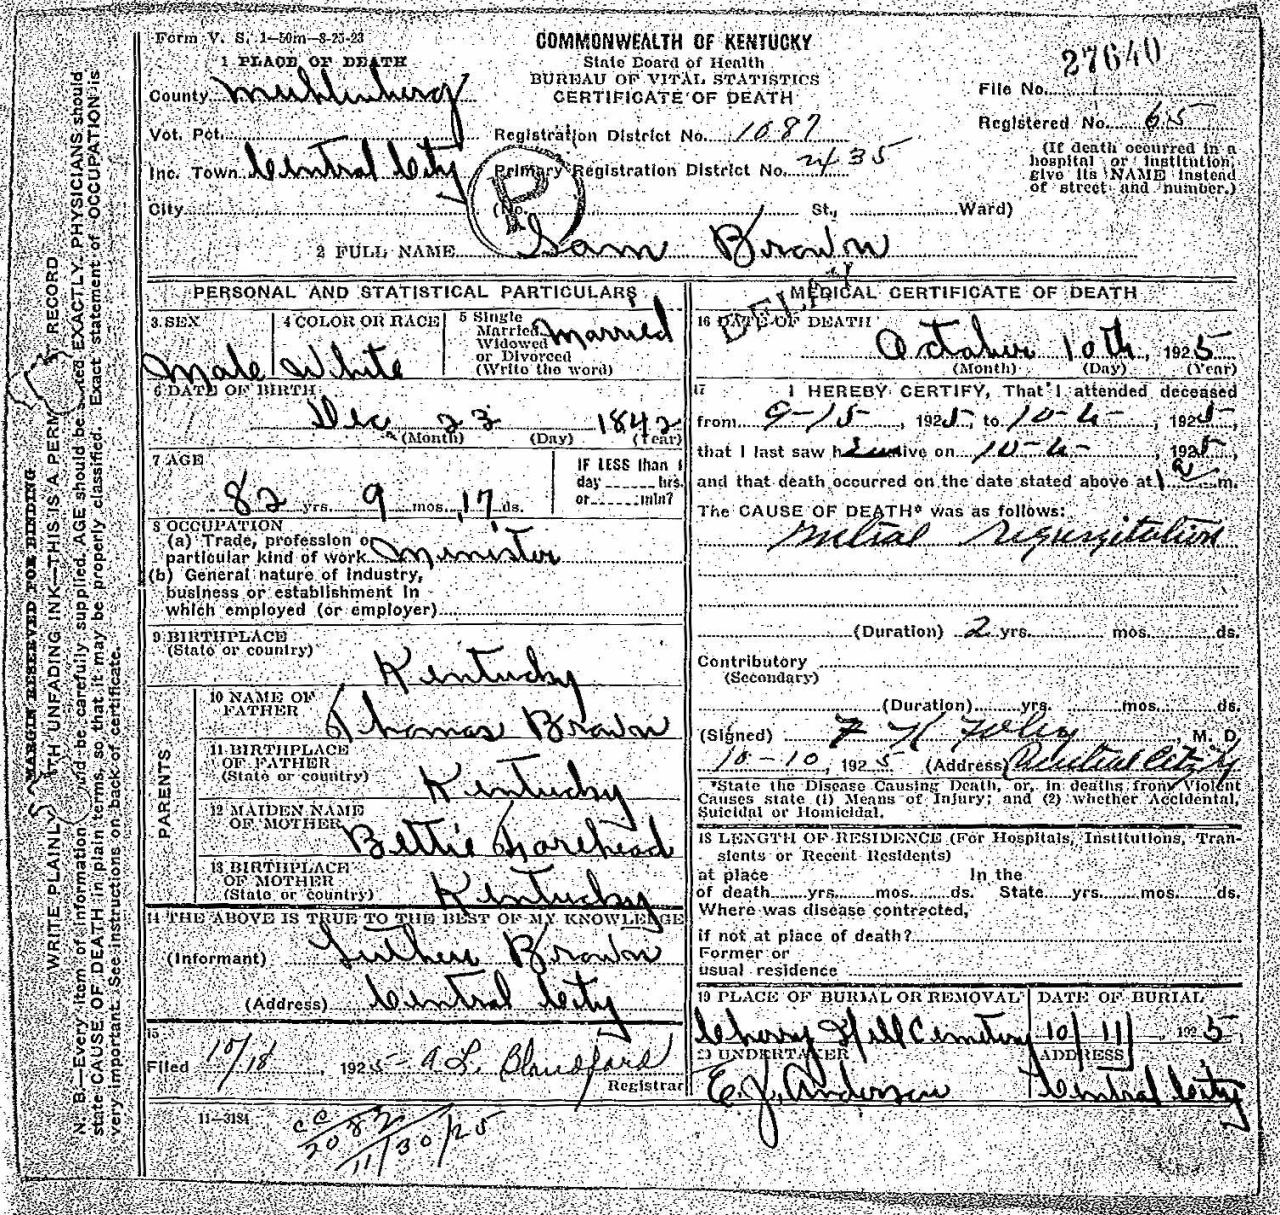 Form V. S. 1—50m—8-25-23
COMMONWEALTH OF KENTUCKY
State Board of Health
BUREAU OF VITAL STATISTICS
CERTIFICATE OF DEATH
27640
File No.
Registered No. 65
(If death occurred in a hospital or institution, give its NAME instead of street and number.)
1 PLACE OF DEATH
County Muhlenberg
Vot. Pct.
Registration District No. 1087
Inc. Town Central City
Primary Registration District No. 2435
City (No. St., Ward)
R
2 FULL NAME Sam Brown
PERSONAL AND STATISTICAL PARTICULARS
3 SEX Male
4 COLOR OR RACE White
5 Single Married Widowed or Divorced (Write the word) Married
6 DATE OF BIRTH
Dec 23 1842
(Month) (Day) (Year)
7 AGE
82 yrs. 9 mos. 17 ds.
IF LESS than 1 day hrs. or min?
8 OCCUPATION
(a) Trade, profession or particular kind of work Minister
(b) General nature of industry, business or establishment in which employed (or employer)
9 BIRTHPLACE
(State or country)
Kentucky
PARENTS
10 NAME OF FATHER Thomas Brown
11 BIRTHPLACE OF FATHER (State or country) Kentucky
12 MAIDEN NAME OF MOTHER Bettie Forehead
13 BIRTHPLACE OF MOTHER (State or country) Kentucky
14 THE ABOVE IS TRUE TO THE BEST OF MY KNOWLEDGE
(Informant) Luther Brown
(Address) Central City
15
Filed 10/18, 1925 A. L. Blandford
Registrar
MEDICAL CERTIFICATE OF DEATH
16 DATE OF DEATH
October 10th, 1925
(Month) (Day) (Year)
17 I HEREBY CERTIFY, That I attended deceased
from 9-15, 1925, to 10-4-, 1925,
that I last saw him alive on 10-4-, 1925,
and that death occurred on the date stated above at 1 a m.
The CAUSE OF DEATH* was as follows:
Mitral regurgitation
(Duration) 2 yrs. mos. ds.
Contributory
(Secondary)
(Duration) yrs. mos. ds.
(Signed) M. D.
10-10, 1925 (Address) Central City
*State the Disease Causing Death, or, in deaths from Violent
Causes state (1) Means of Injury; and (2) whether Accidental,
Suicidal or Homicidal.
18 LENGTH OF RESIDENCE (For Hospitals, Institutions, Transients or Recent Residents)
at place In the
of death yrs. mos. ds. State yrs. mos. ds.
Where was disease contracted,
if not at place of death?
Former or
usual residence
19 PLACE OF BURIAL OR REMOVAL DATE OF BURIAL
Cherry Hill Cemetery 10/11 1925
20 UNDERTAKER ADDRESS
E. J. Anderson Central City
11—3184
cc
2082
11/30/25
MARGIN RESERVED FOR BINDING
WRITE PLAINLY WITH UNFADING INK—THIS IS A PERM T RECORD
N. B.—Every item of information should be carefully supplied. AGE should be stated EXACTLY. PHYSICIANS should
state CAUSE OF DEATH in plain terms, so that it may be properly classified. Exact statement of OCCUPATION is
very important. See instructions on back of certificate.